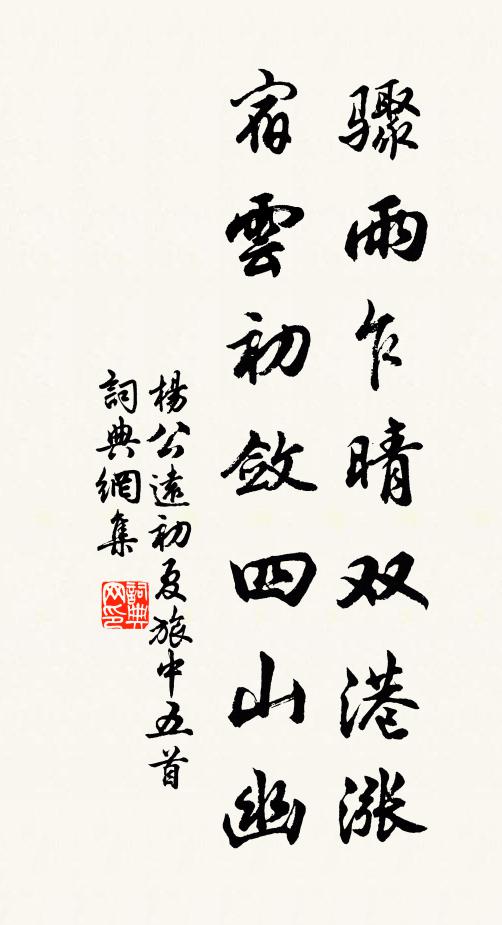 骤雨乍晴双港漲
宿雲初斂四山幽
楊公遠初夏旅中五首
詞典網集
詞典网印